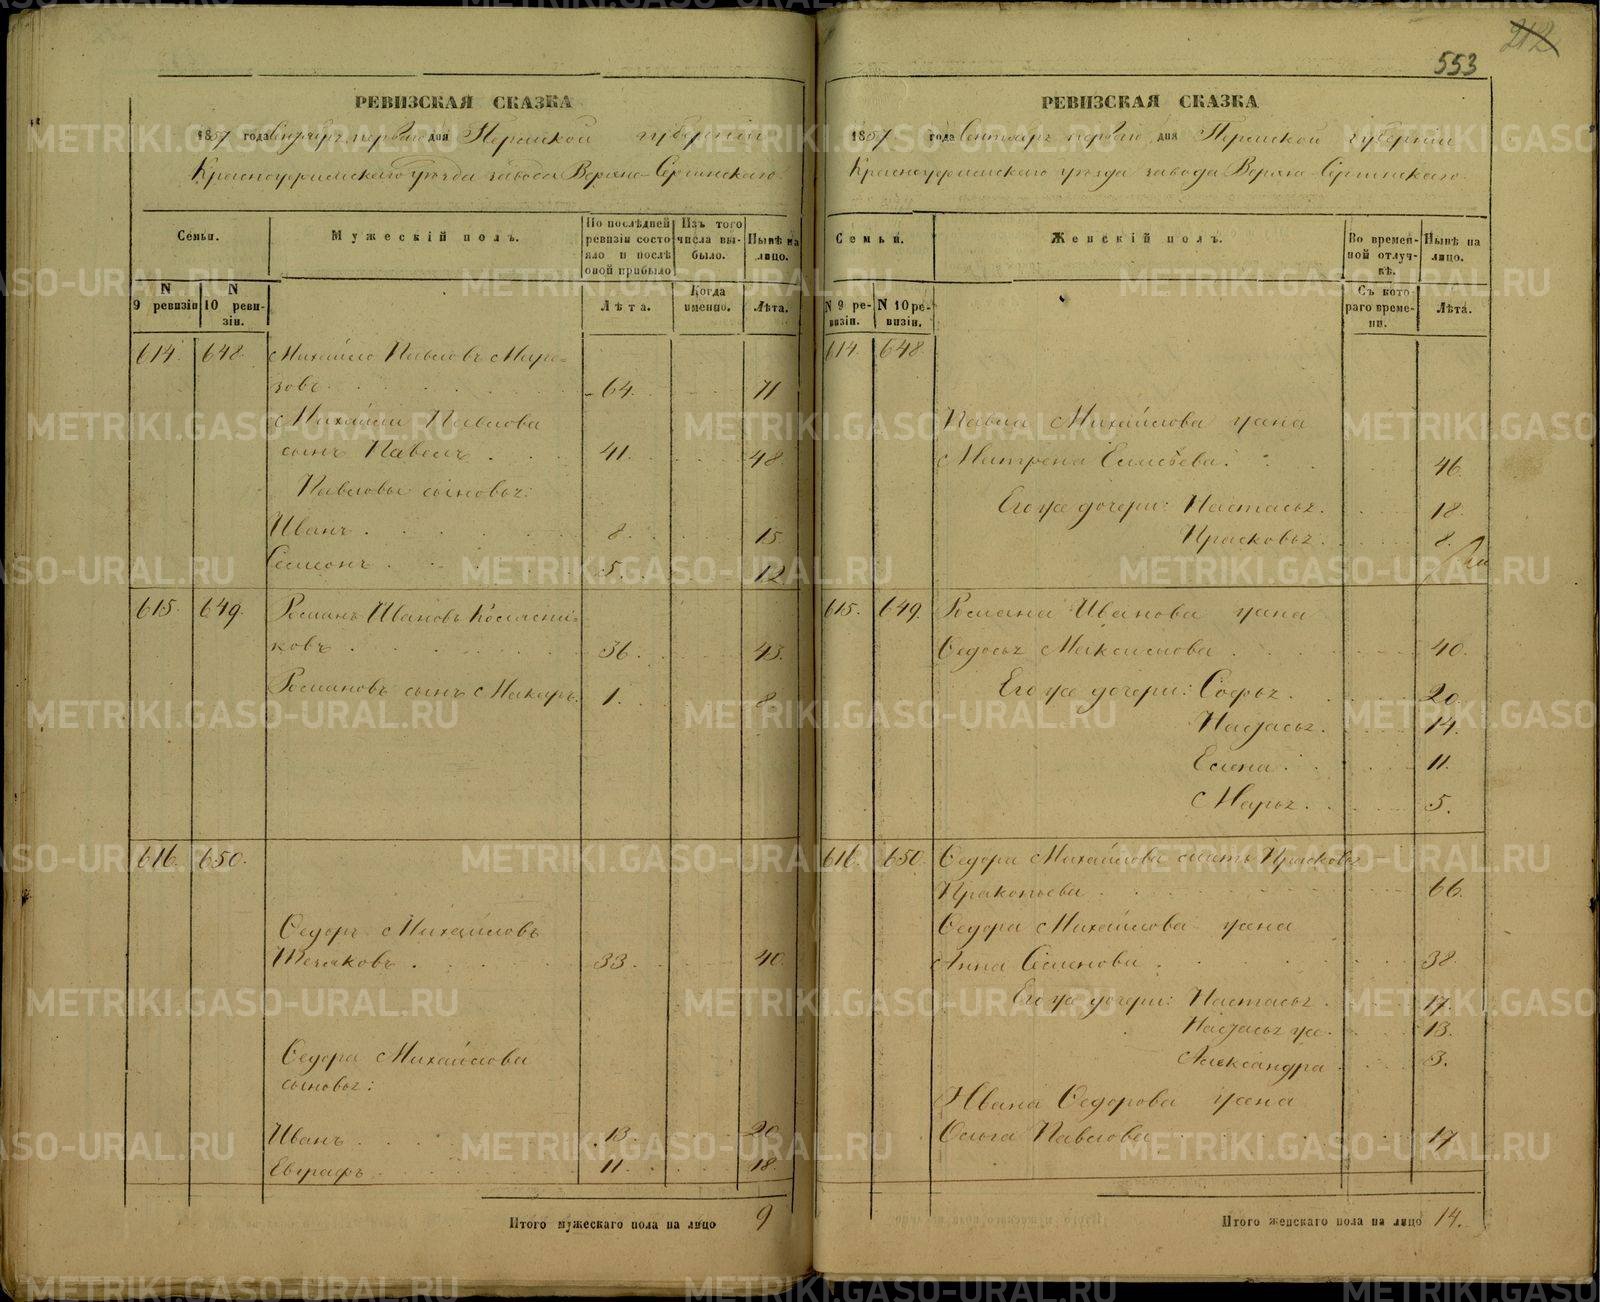 212
553
РЕВИЗСКАЯ СКАЗКА
1857 года Сентября первого дня Пермской губернии
Красноуфимского уезда завода Верхно-Сергинскаго
Семьи.
Мужескій полъ.
По послѣдней ревизіи состояло и послѣ оной прибыло
Изъ того числа выбыло.
Нынѣ на лицо.
N 9 ревизіи
N 10 ревизіи.
Лѣта.
Когда именно.
Лѣта.
614. 648. Михайло Павловъ Моро-
зовъ 64. 71
Михайла Павлова
сынъ Павелъ 41. 48.
Павловы сыновья:
Иванъ 8. 15
Семенъ 5. 12
615. 649. Романъ Ивановъ
ковъ 36. 43.
Романовъ сынъ Макаръ. 1. 8
616. 650.
Федоръ Михайловъ
33. 40.
Федора Михайлова
сыновья:
Иванъ 13. 20.
Евграфъ 11. 18.
Итого мужескаго пола на лицо 9
РЕВИЗСКАЯ СКАЗКА
1857 года Сентября первого дня Пермской губернии
Красноуфимского уезда завода Верхно-Сергинскаго.
Семьи.
Женскій полъ.
Во временной отлучкѣ.
Нынѣ на лицо.
N 9 ревизіи.
N 10 ревизіи.
Съ котораго времени.
Лѣта.
614. 648.
Павла Михайлова жена
Матрена Елисеева. 46.
Его же дочери: Настасья. 18.
Прасковья. 8.
615. 649. Романа Иванова жена
Федосья Максимова 40.
Его же дочери: Софья. 20.
Настасья. 14.
Елена. 11.
Марья. 5.
616. 650. Федора Михайлова мать Прасковья
Пракопьева 66.
Федора Михайлова жена
Анна Семенова 38.
Его же дочери: Настасья. 17.
Настасья же. 13.
Александра 3.
Ивана Федорова жена
Ольга Павлова 17.
Итого женскаго пола на лицо 14.
METRIKI.GASO-URAL.RU